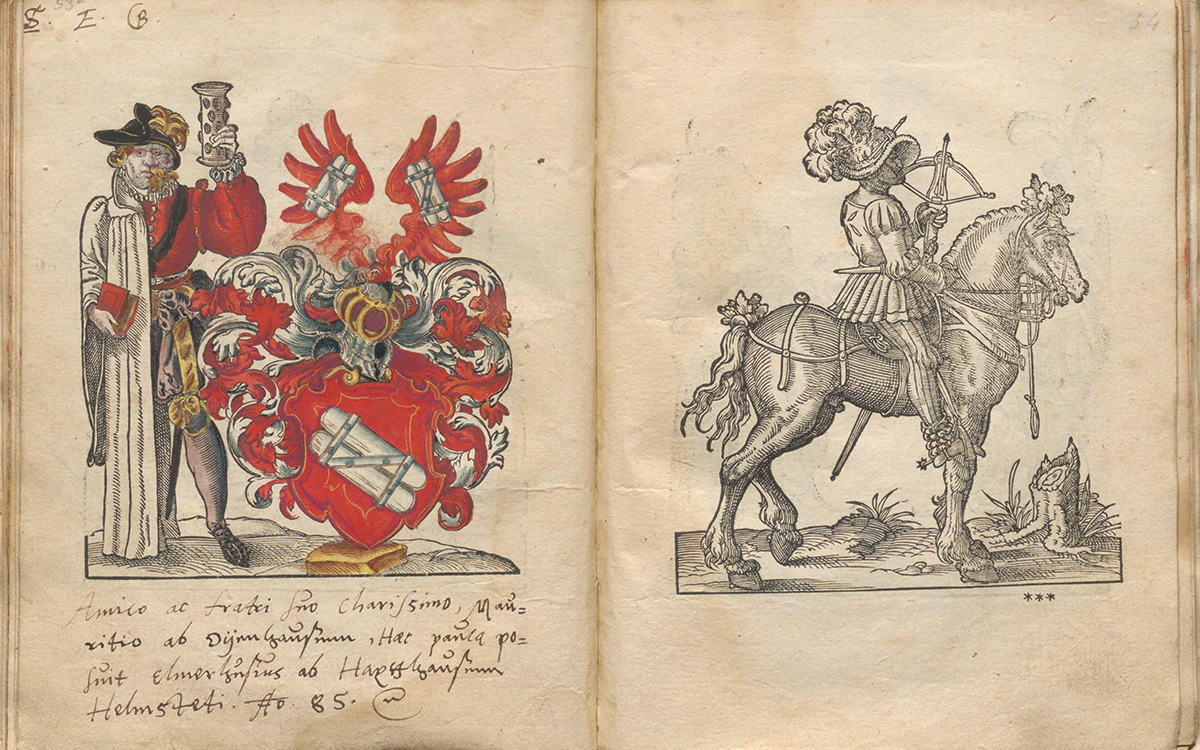 S. E. B.
54
Amico ac fratri suo Charissimo, Mau=
ritio ab Oÿenhausenn, Hæc pauca po=
suit Elmerhusius ab Haxthausenn
Helmsteti. Ao. 85.
***